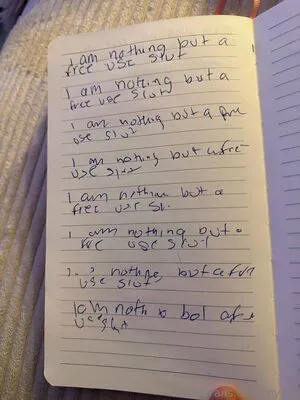 I am nothing but a
free use slut
I am nothing but a
free use slut
I am nothing but a free
use slut
I am nothing but a free
use slut
I am nothing but a
free use slu
I am nothing but a
free use slut
nothing but a free
use slut
I am
use slut